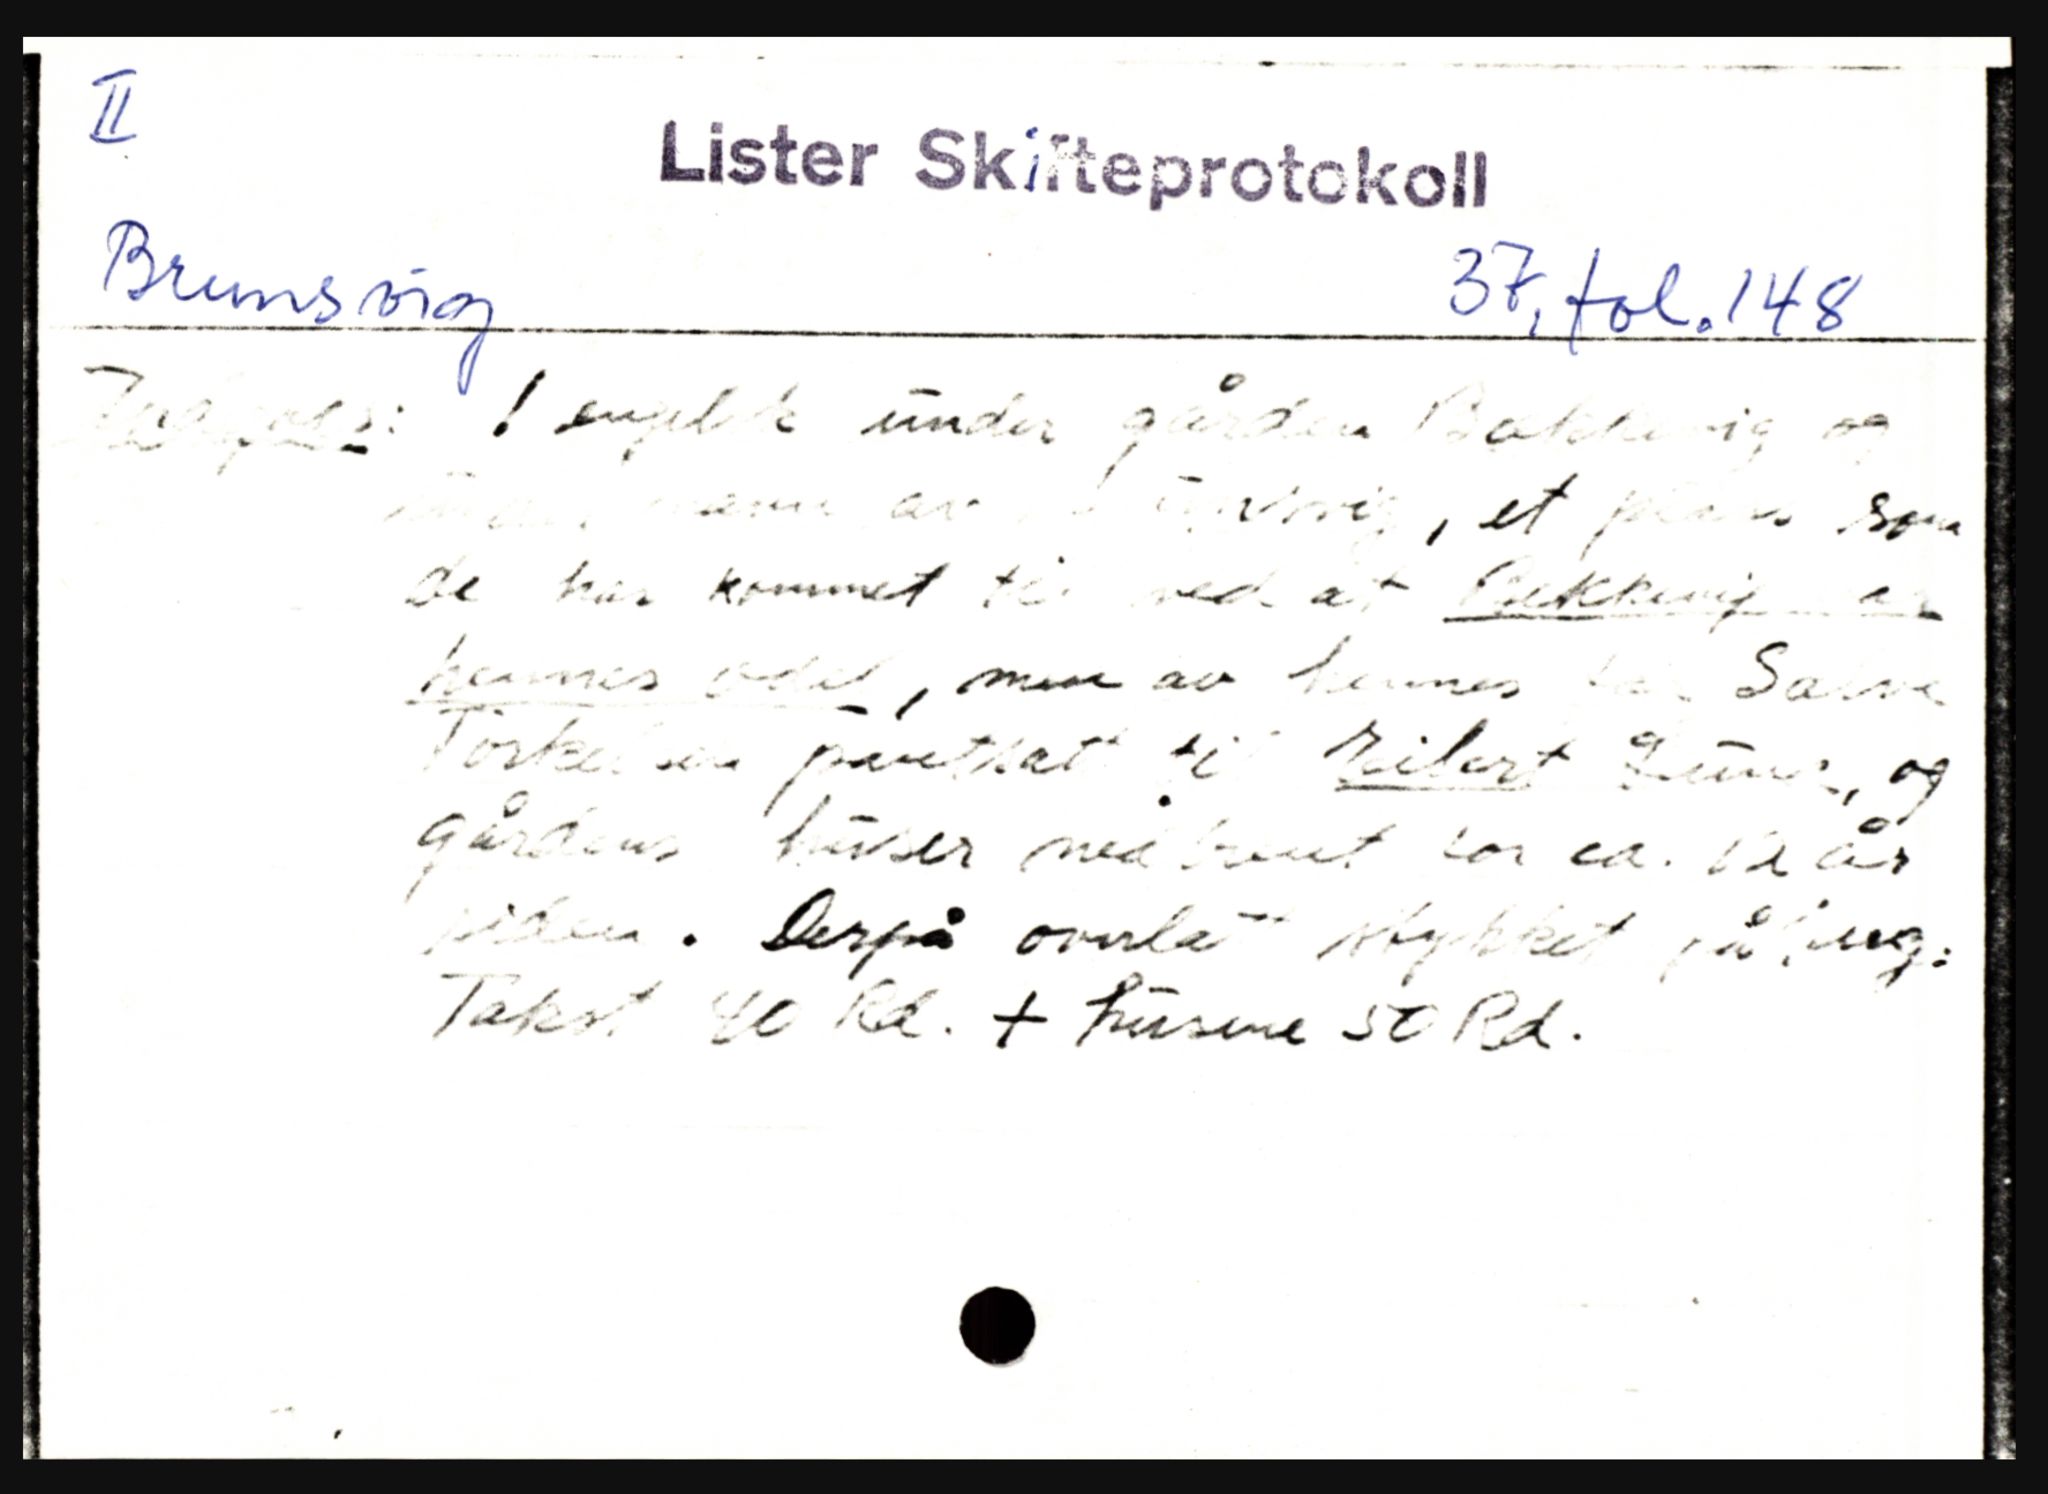 II
Lister Skifteprotokoll
Brunsvig
37, fol. 148
Jordgods: 1 engelek under gården Bakkevig og
under navn av, et plass som
de har kommet til ved at Bakkevig var
hennes odel, men av hennes far Salve
Torkelsen pantsat til Eilert Lund, og
gårdens huser nedbrent for ca. 12 år
siden. Derpå overlatt stykket på
Takst 40 Rd. + husene 50 Rd.